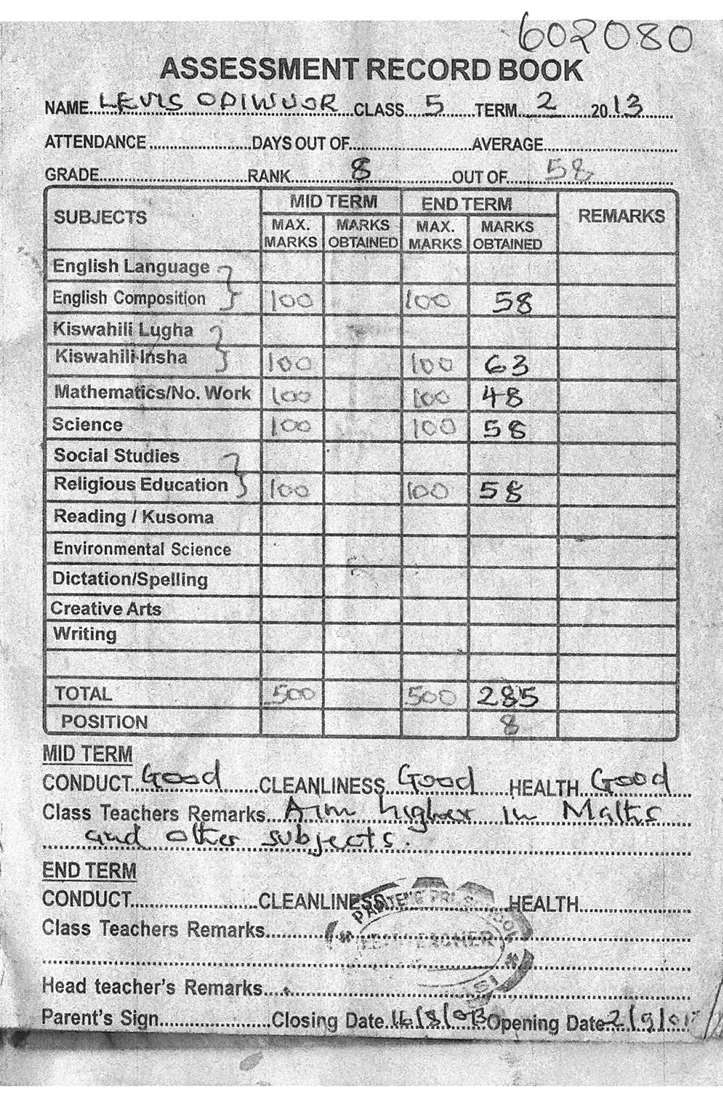 602080
ASSESSMENT RECORD BOOK
NAME LEVIS ODIWUOR CLASS 5 TERM 2 2013
ATTENDANCE DAYS OUT OF AVERAGE
GRADE RANK 8 OUT OF 58
SUBJECTS MID TERM END TERM REMARKS
MAX. MARKS MARKS OBTAINED MAX. MARKS MARKS OBTAINED
English Language
English Composition 100 100 58
Kiswahili Lugha
Kiswahili Insha 100 100 63
Mathematics/No. Work 100 100 48
Science 100 100 58
Social Studies
Religious Education 100 100 58
Reading / Kusoma
Environmental Science
Dictation/Spelling
Creative Arts
Writing
TOTAL 500 500 285
POSITION 8
MID TERM
CONDUCT Good CLEANLINESS Good HEALTH Good
Class Teachers Remarks Aim higher in Maths
and other subjects.
END TERM
CONDUCT CLEANLINESS HEALTH
Class Teachers Remarks
Head teacher's Remarks
Parent's Sign Closing Date Opening Date